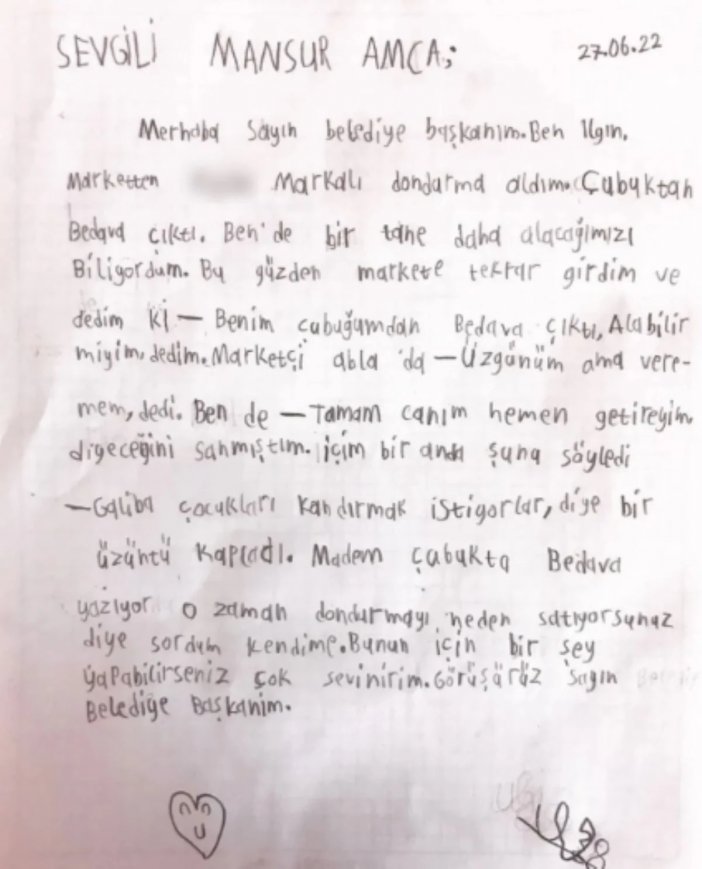 SEVGİLİ MANSUR AMCA; 27.06.22
Merhaba Sayın belediye başkanım. Ben Ilgın.
Marketten Markalı dondarma aldım. Çubuktan
Bedava çıktı. Ben'de bir tane daha alacağımızı
Biliyordum. Bu yüzden markete tekrar girdim ve
dedim ki — Benim çubuğumdan Bedava çıktı, Alabilir
miyim, dedim. Marketçi abla 'da — Üzgünüm ama vere-
mem, dedi. Ben de — Tamam canım hemen getireyim
diyeceğini sanmıştım. içim bir anda şuna söyledi
— Galiba çocukları kandırmak istiyorlar, diye bir
üzüntü kapladı. Madem çubukta Bedava
yazıyor o zaman dondurmayı neden satıyorsunuz
diye sordum kendime. Bunun için bir sey
yapabilirseniz çok sevinirim. Görüşürüz Sayın
Belediye Başkanim.